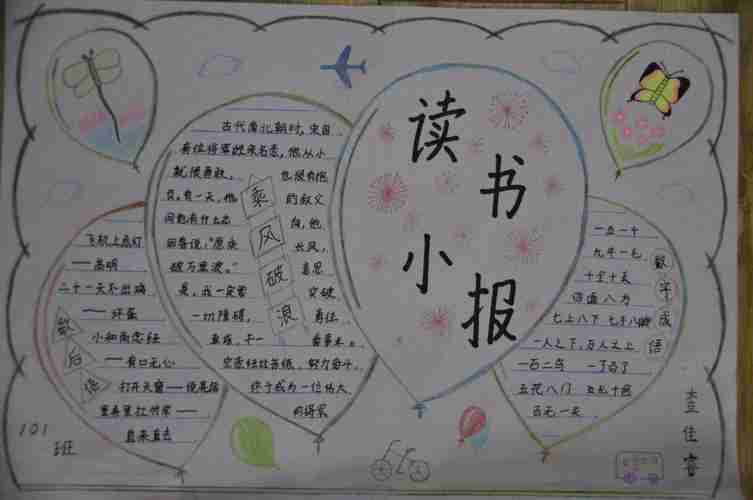 读书小报
古代南北朝时,宋国
有位将军姓宗名悫,他从小
就很勇敢, 也很有抱
负。有一天,他 的叔父
问他有什么志 向,他
回答说:“愿乘 长风,
破万里浪。” 意思
是,我一定要 突破
一切障碍, 勇往
直前,干一 番事业。
宗悫经过苦练、努力奋斗,
终于成为一位伟大
的将军
乘风破浪
飞机上点灯
——高明
二十一天不出鸡
——坏蛋
小和尚念经
——有口无心
打开天窗——说亮话
里弄里扛竹竿——
直来直去
歇后语
一五一十
九牛一毛
十全十美
四面八方
七上八下 七手八脚
一人之下,万人之上
一石二鸟 一了百了
五花八门
百无一失
数字成语
101
班
佳睿